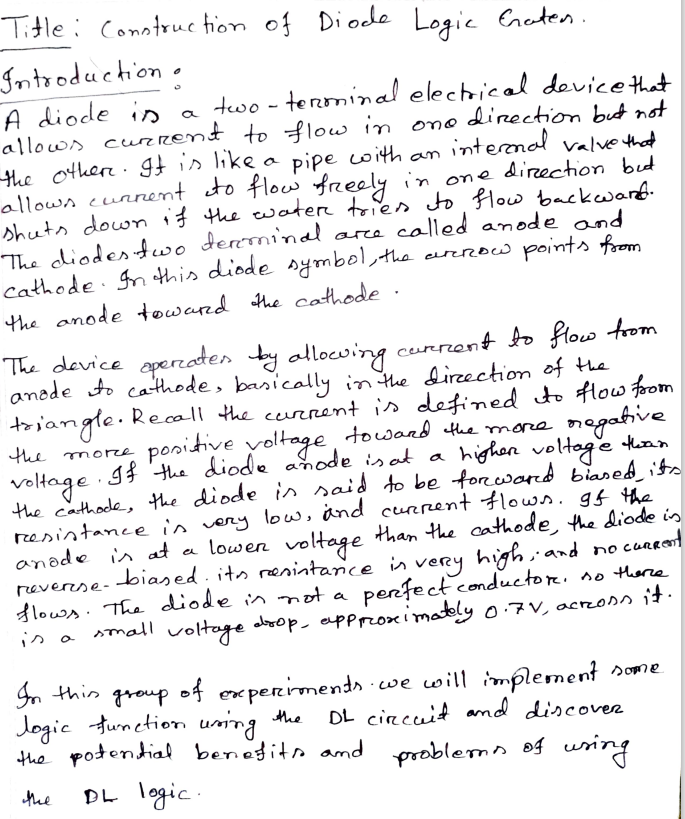 Title: Construction of Diode Logic Gates.
Introduction:
A diode is a two-terminal electrical device that
allows current to flow in one direction but not
the other. It is like a pipe with an internal valve that
allows current to flow freely in one direction but
shuts down if the water tries to flow backward.
The diodes two terminal are called anode and
cathode. In this diode symbol, the arrow points from
the anode toward the cathode.
The device operates by allowing current to flow from
anode to cathode, basically in the direction of the
triangle. Recall the current is defined to flow from
the more positive voltage toward the more negative
voltage. If the diode anode is at a higher voltage than
the cathode, the diode is said to be forward biased, its
resistance is very low, and current flows. If the
anode is at a lower voltage than the cathode, the diode is
reverse-biased. its resistance is very high, and no current
flows. The diode is not a perfect conductor. so there
is a small voltage drop, approximately 0.7V, across it.
In this group of experiments we will implement some
logic function using the DL circuit and discover
the potential benefits and problems of using
the DL logic.